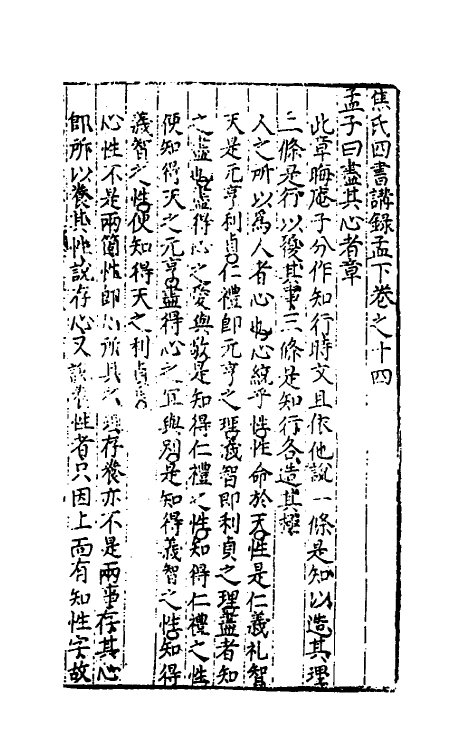 焦氏四書講録孟下卷之十四
孟子曰盡其心者章
此章晦庵子分作知行時文且依他說一條是知以造其理
二條是行以履其事三條是知行各造其極
人之所以爲人者心也心統乎性性命於天性是仁義礼智
天是元亨利貞仁禮即元亨之理義智即利貞之理盡者知
之盡也盡得心之愛與敬是知得仁禮之性知得仁禮之性
便知得天之元亨盡得心之宜與別是知得義智之性知得
義智之性便知得天之利貞
心性不是兩箇性即心所具之理存養亦不是兩事存其心
即所以養其性說存心又說養性者只因上面有知性字故